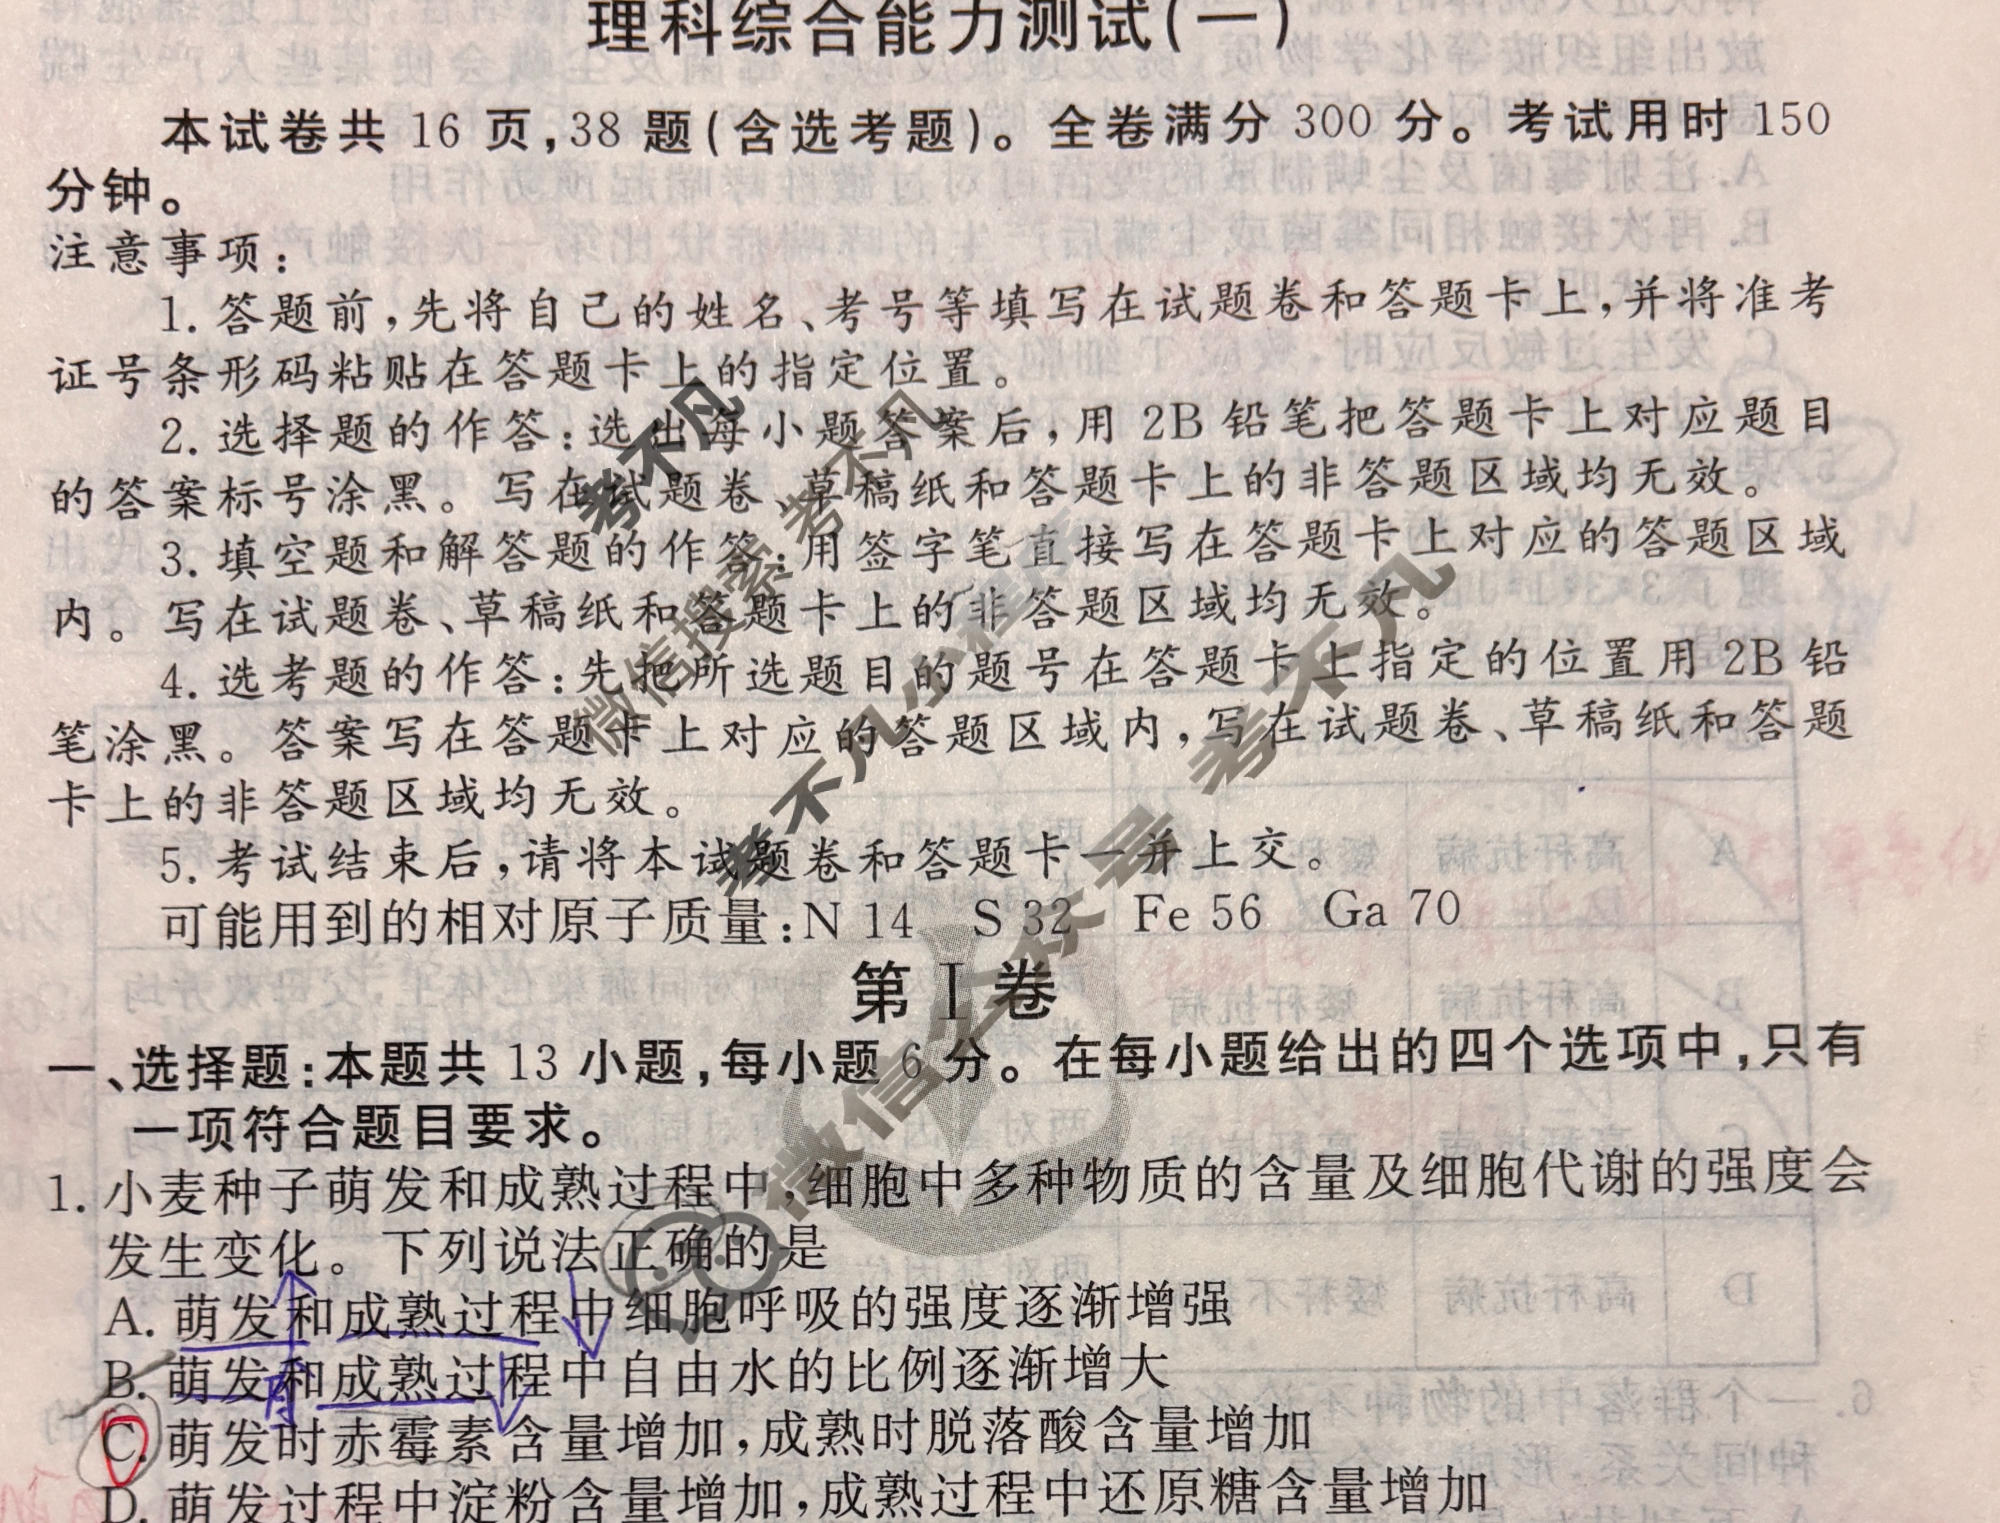 理科综合能力测试(一)
本试卷共 16 页,38 题(含选考题)。全卷满分 300 分。考试用时 150
分钟。
注意事项:
1. 答题前,先将自己的姓名、考号等填写在试题卷和答题卡上,并将准考
证号条形码粘贴在答题卡上的指定位置。
2. 选择题的作答:选出每小题答案后,用 2B 铅笔把答题卡上对应题目
的答案标号涂黑。写在试题卷、草稿纸和答题卡上的非答题区域均无效。
3. 填空题和解答题的作答:用签字笔直接写在答题卡上对应的答题区域
内。写在试题卷、草稿纸和答题卡上的非答题区域均无效。
4. 选考题的作答:先把所选题目的题号在答题卡上指定的位置用 2B 铅
笔涂黑。答案写在答题卡上对应的答题区域内,写在试题卷、草稿纸和答题
卡上的非答题区域均无效。
5. 考试结束后,请将本试题卷和答题卡一并上交。
可能用到的相对原子质量:N 14 S 32 Fe 56 Ga 70
第 I 卷
一、选择题:本题共 13 小题,每小题 6 分。在每小题给出的四个选项中,只有
一项符合题目要求。
1. 小麦种子萌发和成熟过程中,细胞中多种物质的含量及细胞代谢的强度会
发生变化。下列说法正确的是
A. 萌发和成熟过程中细胞呼吸的强度逐渐增强
B. 萌发和成熟过程中自由水的比例逐渐增大
C. 萌发时赤霉素含量增加,成熟时脱落酸含量增加
D. 萌发过程中淀粉含量增加,成熟过程中还原糖含量增加
考不凡
微信搜索 考不凡
考不凡小程序
微信公众号 考不凡